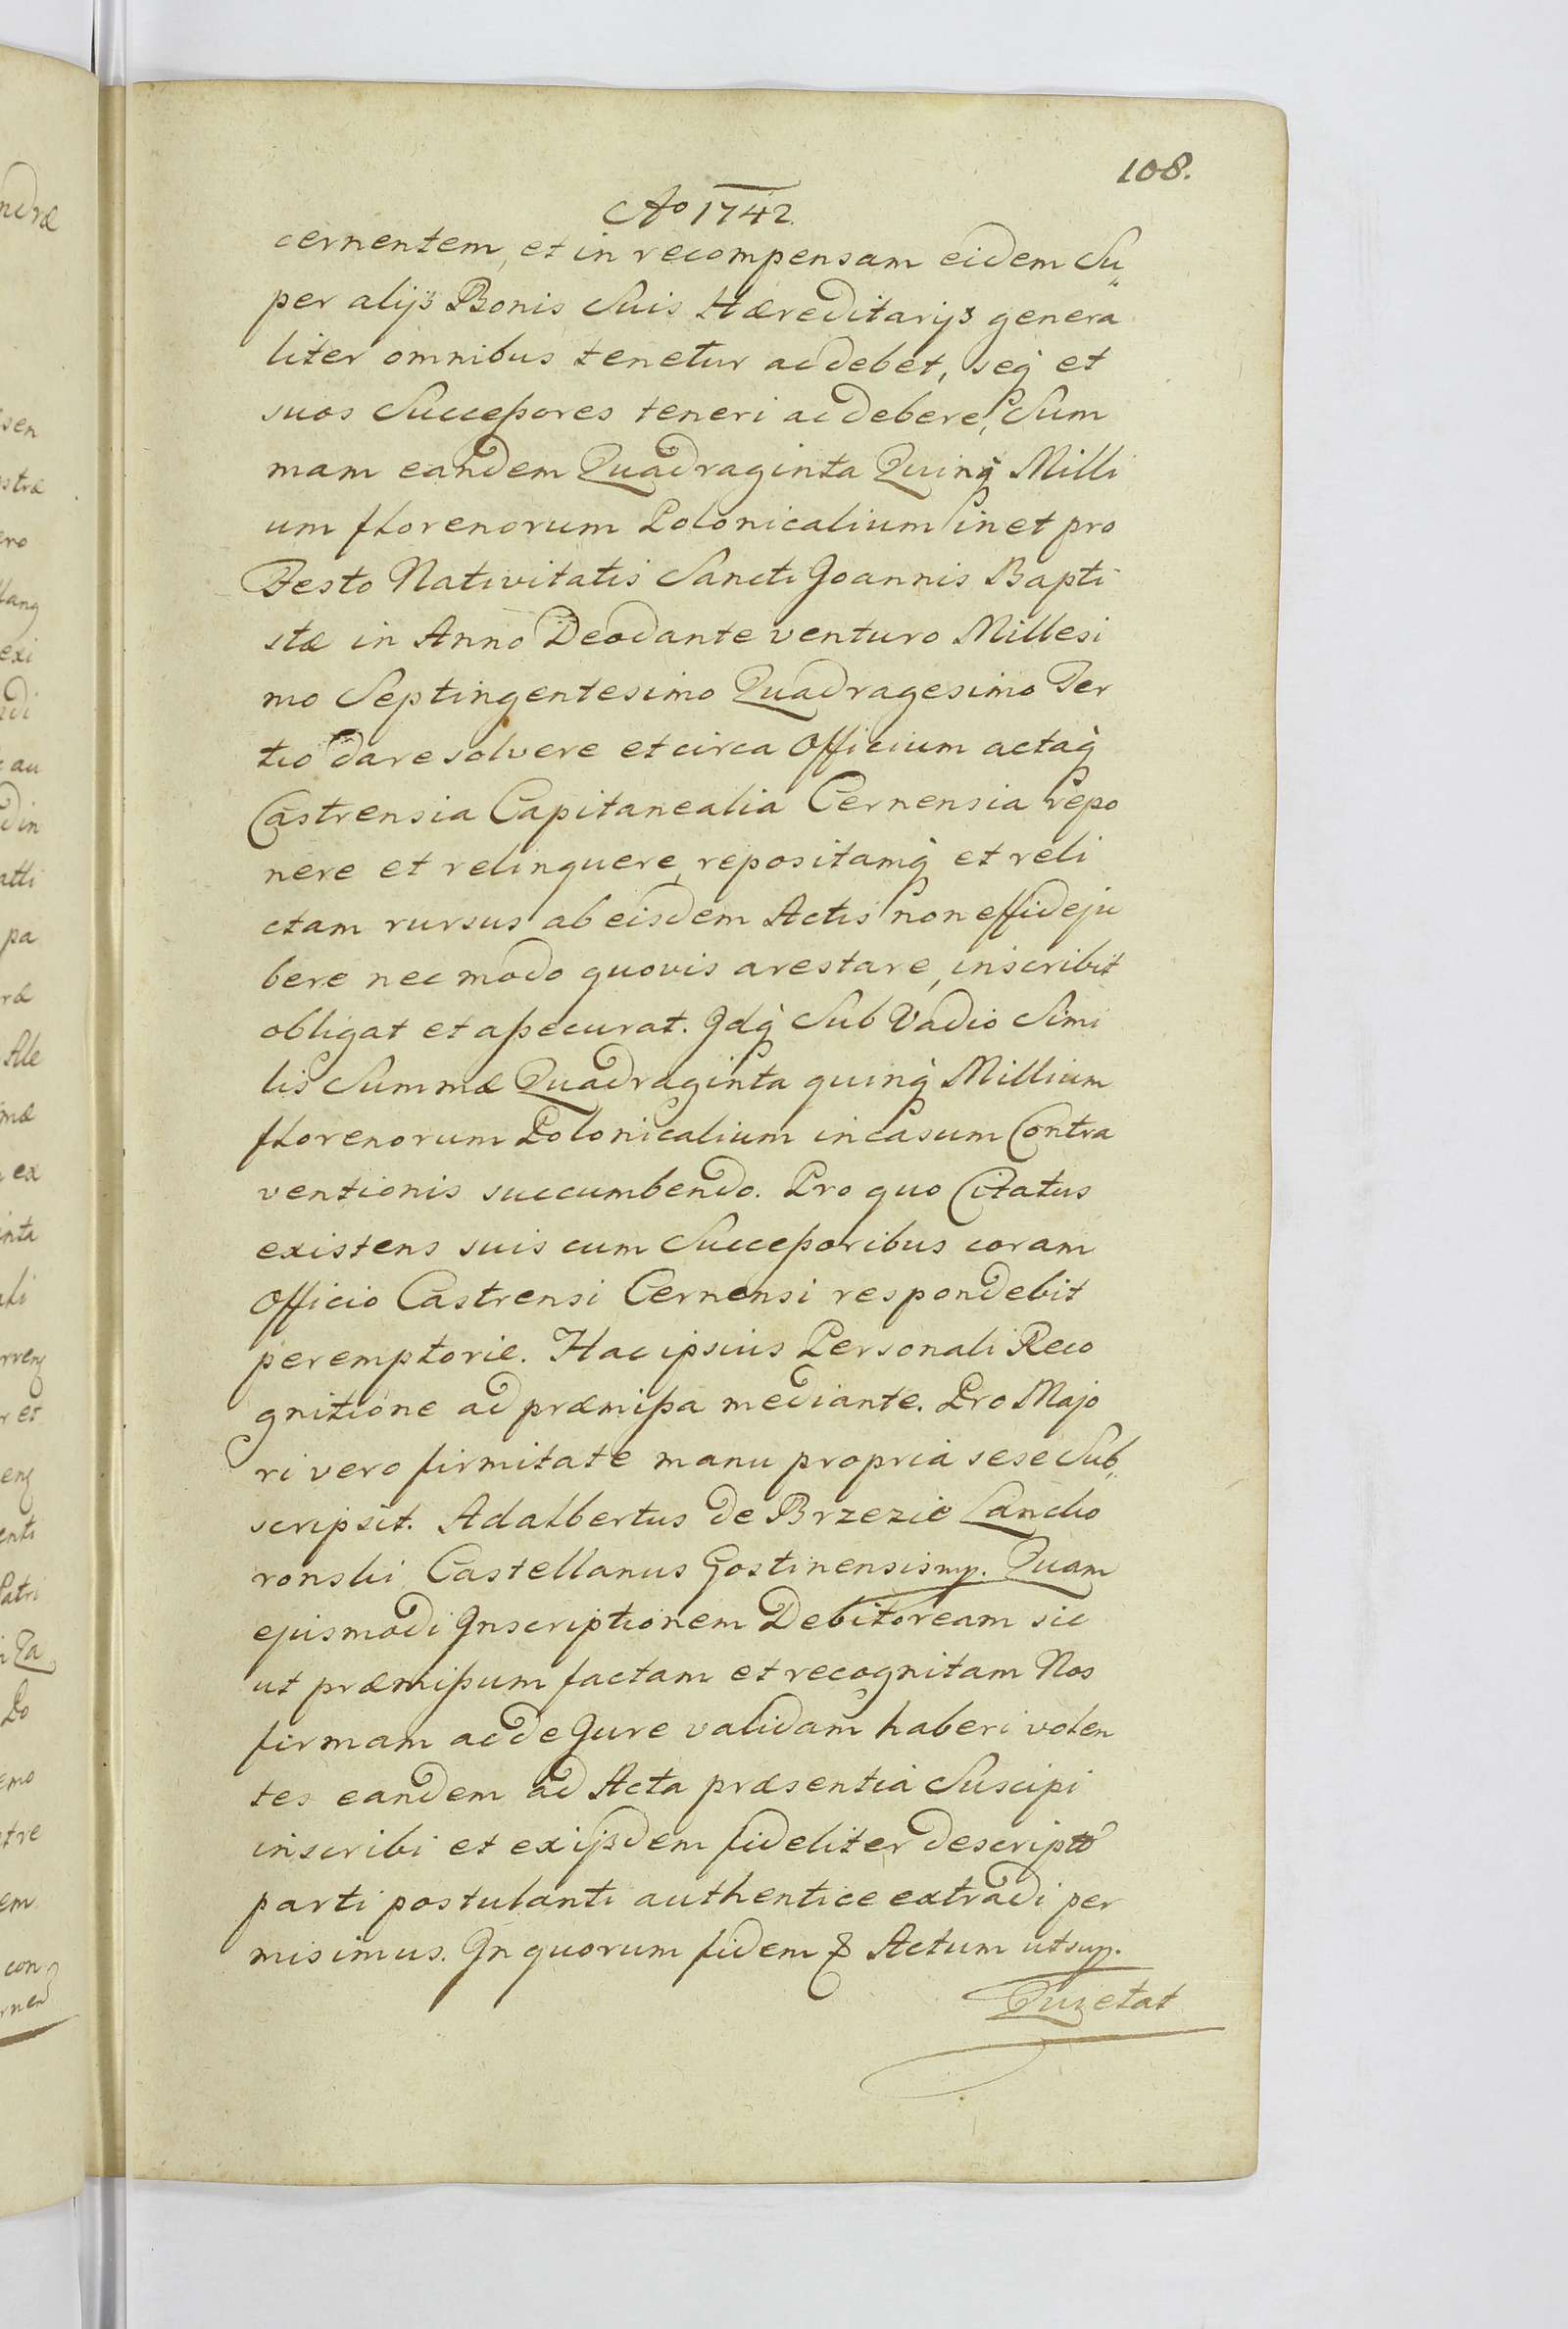 108.
Ao 1742.
cernentem, et in recompensam eidem Su„
per alijs Bonis Suis Hæreditarijs genera
liter omnibus tenetur ac debet, seq̀ et
suos Succeßores teneri ac debere, Sum
mam eandem Quadraginta Quinq̀ Milli
um florenorum Polonicalium in et pro
Festo Nativitatis Sancti Joannis Bapti
stæ in Anno Deo dante venturo Millesi
mo Septingentesimo Quadragesimo Ter
tio dare solvere et circa Officium actaq̀
Castrensia Capitanealia Cernensia repo
nere et relinquere, repositamq̀ et reli
ctam rursus ab eisdem Actis non effideju
bere nec modo quovis arestare, inscribit
obligat et aßecurat. Jdq̀ Sub Vadio Simi
lis Summæ Quadraginta quinq̀ Millium
florenorum Polonicalium in casum Contra
ventionis succumbendo. Pro quo Citatus
existens suis cum Succeßoribus coram
Officio Castrensi Cernensi respondebit
peremptorie. Hac ipsius Personali Reco
gnitione ad præmißa mediante. Pro Majo
ri vero firmitate manu propria sese Sub„
scripsit. Adalbertus de Brzezie Lancko
ronski Castellanus Gostinensis mp. Quam
ejusmodi Jnscriptionem Debitoream sic
ut præmißum factam et recognitam Nos
firmam ac de Jure validam haberi volen
tes eandem ad Acta præsentia Suscipi
inscribi et ex ijsdem fideliter descripto
parti postulanti authentice extradi per
misimus. Jn quorum fidem & Actum ut sup.
Quietat